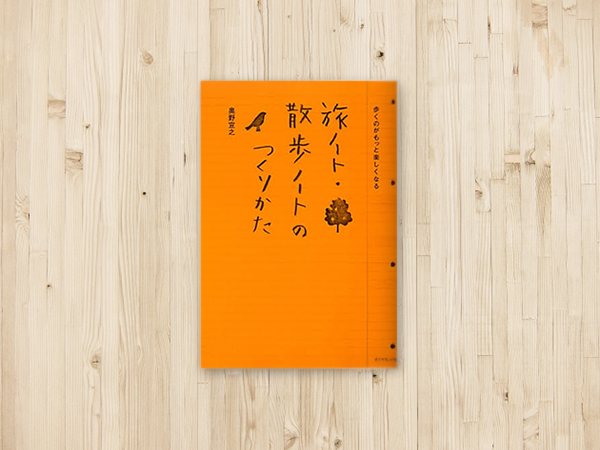 歩くのがもっと楽しくなる
旅ノート・
散歩ノートの
つくりかた
奥野宣之